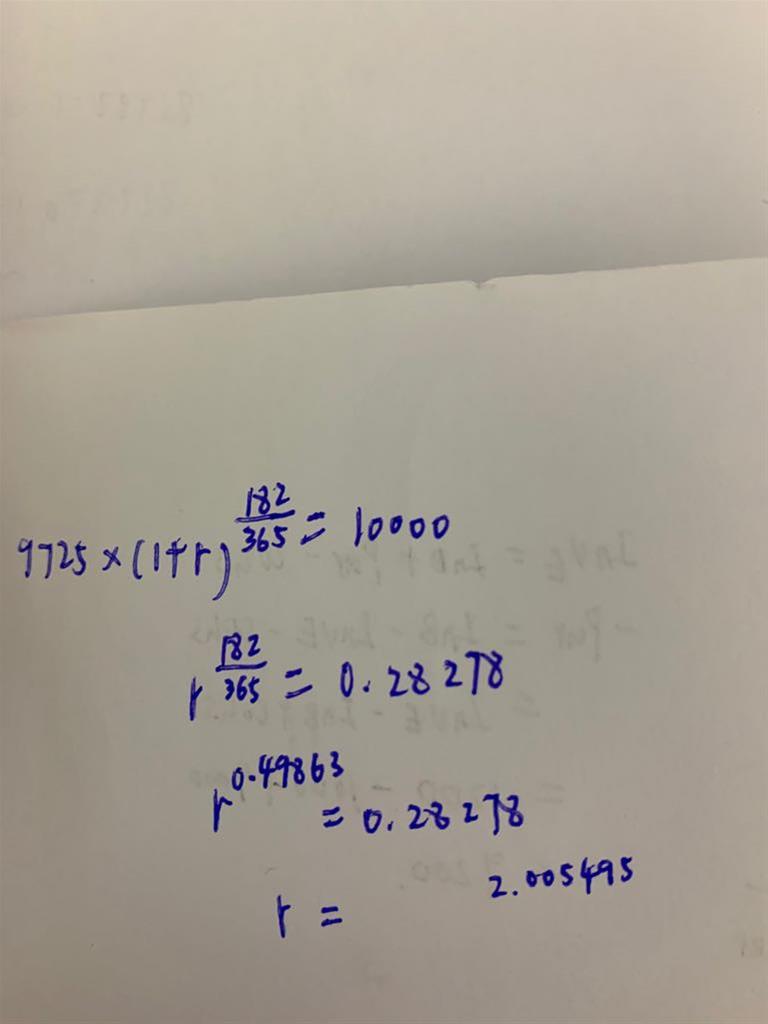 9725 × (1+r)^(182/365) = 10000
r^(182/365) = 0.28278
r^0.49863 = 0.28278
r = 2.005495